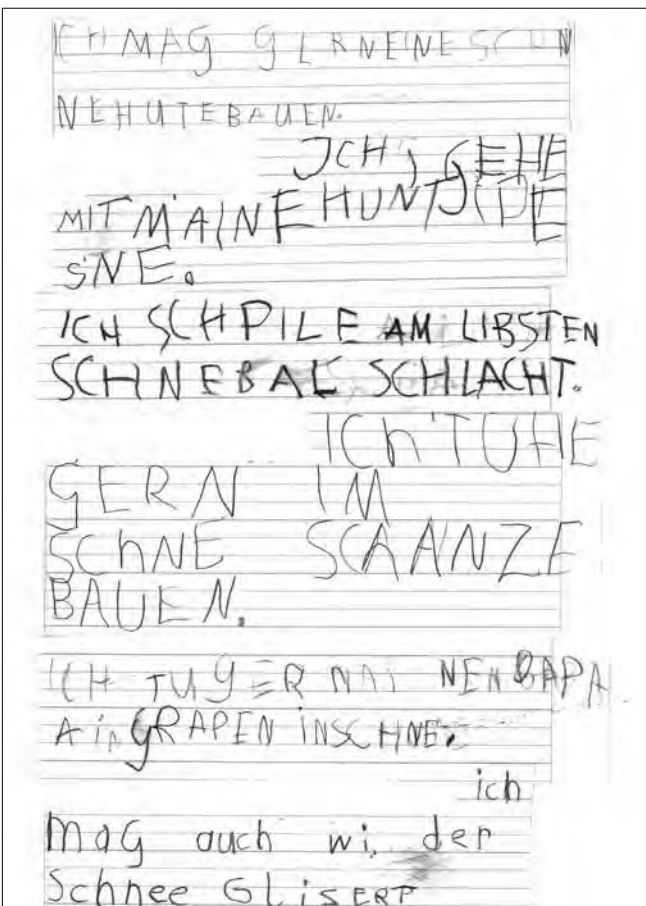 ICH MAG GERNEINESCHN
NEHUTEBAUEN.
ICH, GEHE
MIT MAINE HUNT
SNE.
ICH SCHPILE AM LIBSTEN
SCHNEBAL SCHLACHT.
ICh TUHE
GERN IM
SChNE SCHANZE
BAUEN.
ICH TU GER MAI NEN BAPA
AIN GRAPEN INSCHNE.
ich
MaG auch wi der
Schnee GLiSERT